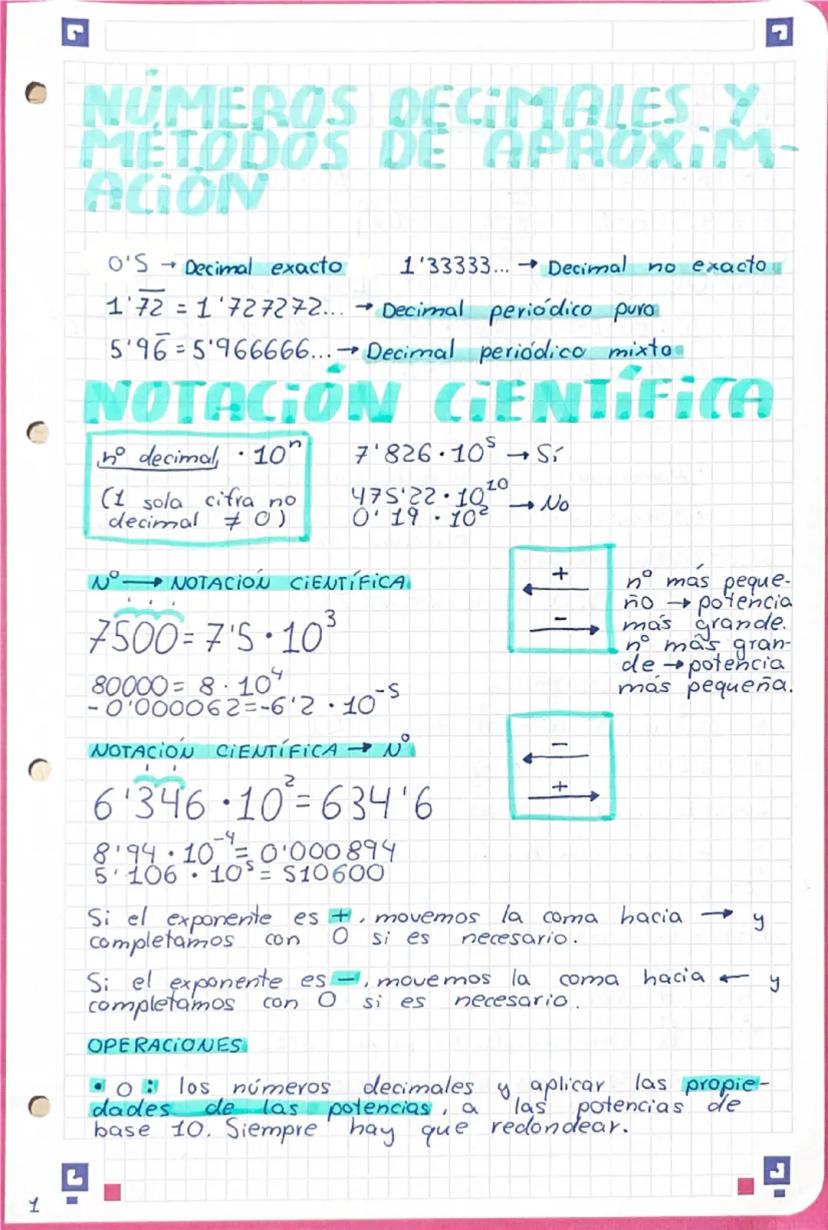 NÚMEROS DECIMALES Y
MÉTODOS DE APROXIM-
ACIÓN
0'5 → Decimal exacto
1'33333... → Decimal no exacto
1'7̅2̅ = 1'727272... → Decimal periódico puro
5'96̅ = 5'966666... → Decimal periódico mixto
NOTACIÓN CIENTÍFICA
nº decimal · 10ⁿ
(1 sola cifra no
decimal ≠ 0)
7'826 · 10⁵ → Sí
475'22 · 10¹⁰
0'19 · 10² → No
Nº → NOTACIÓN CIENTÍFICA
7500 = 7'5 · 10³
80000 = 8 · 10⁴
-0'000062 = -6'2 · 10⁻⁵
+
←
−
→
nº más peque-
ño → potencia
más grande.
nº más gran-
de → potencia
más pequeña.
NOTACIÓN CIENTÍFICA → Nº
6'346 · 10² = 634'6
8'94 · 10⁻⁴ = 0'000894
5'106 · 10⁵ = 510600
−
←
+
→
Si el exponente es +, movemos la coma hacia → y
completamos con 0 si es necesario.
Si el exponente es −, movemos la coma hacia ← y
completamos con 0 si es necesario.
OPERACIONES
· o : los números decimales y aplicar las propie-
dades de las potencias, a las potencias de
base 10. Siempre hay que redondear.
1